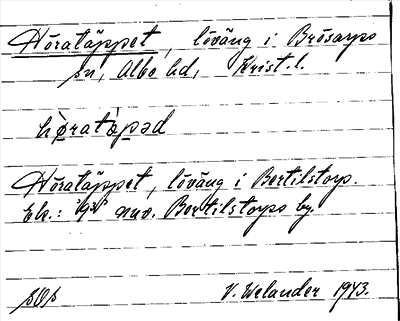 Höratäppet, löväng i Brösarps
sn, Albo hd, Krist. l.
Höratäppet, löväng i Bertilstorp.
Ek.: nuv. Bertilstorps by.
V. Welander 1943.